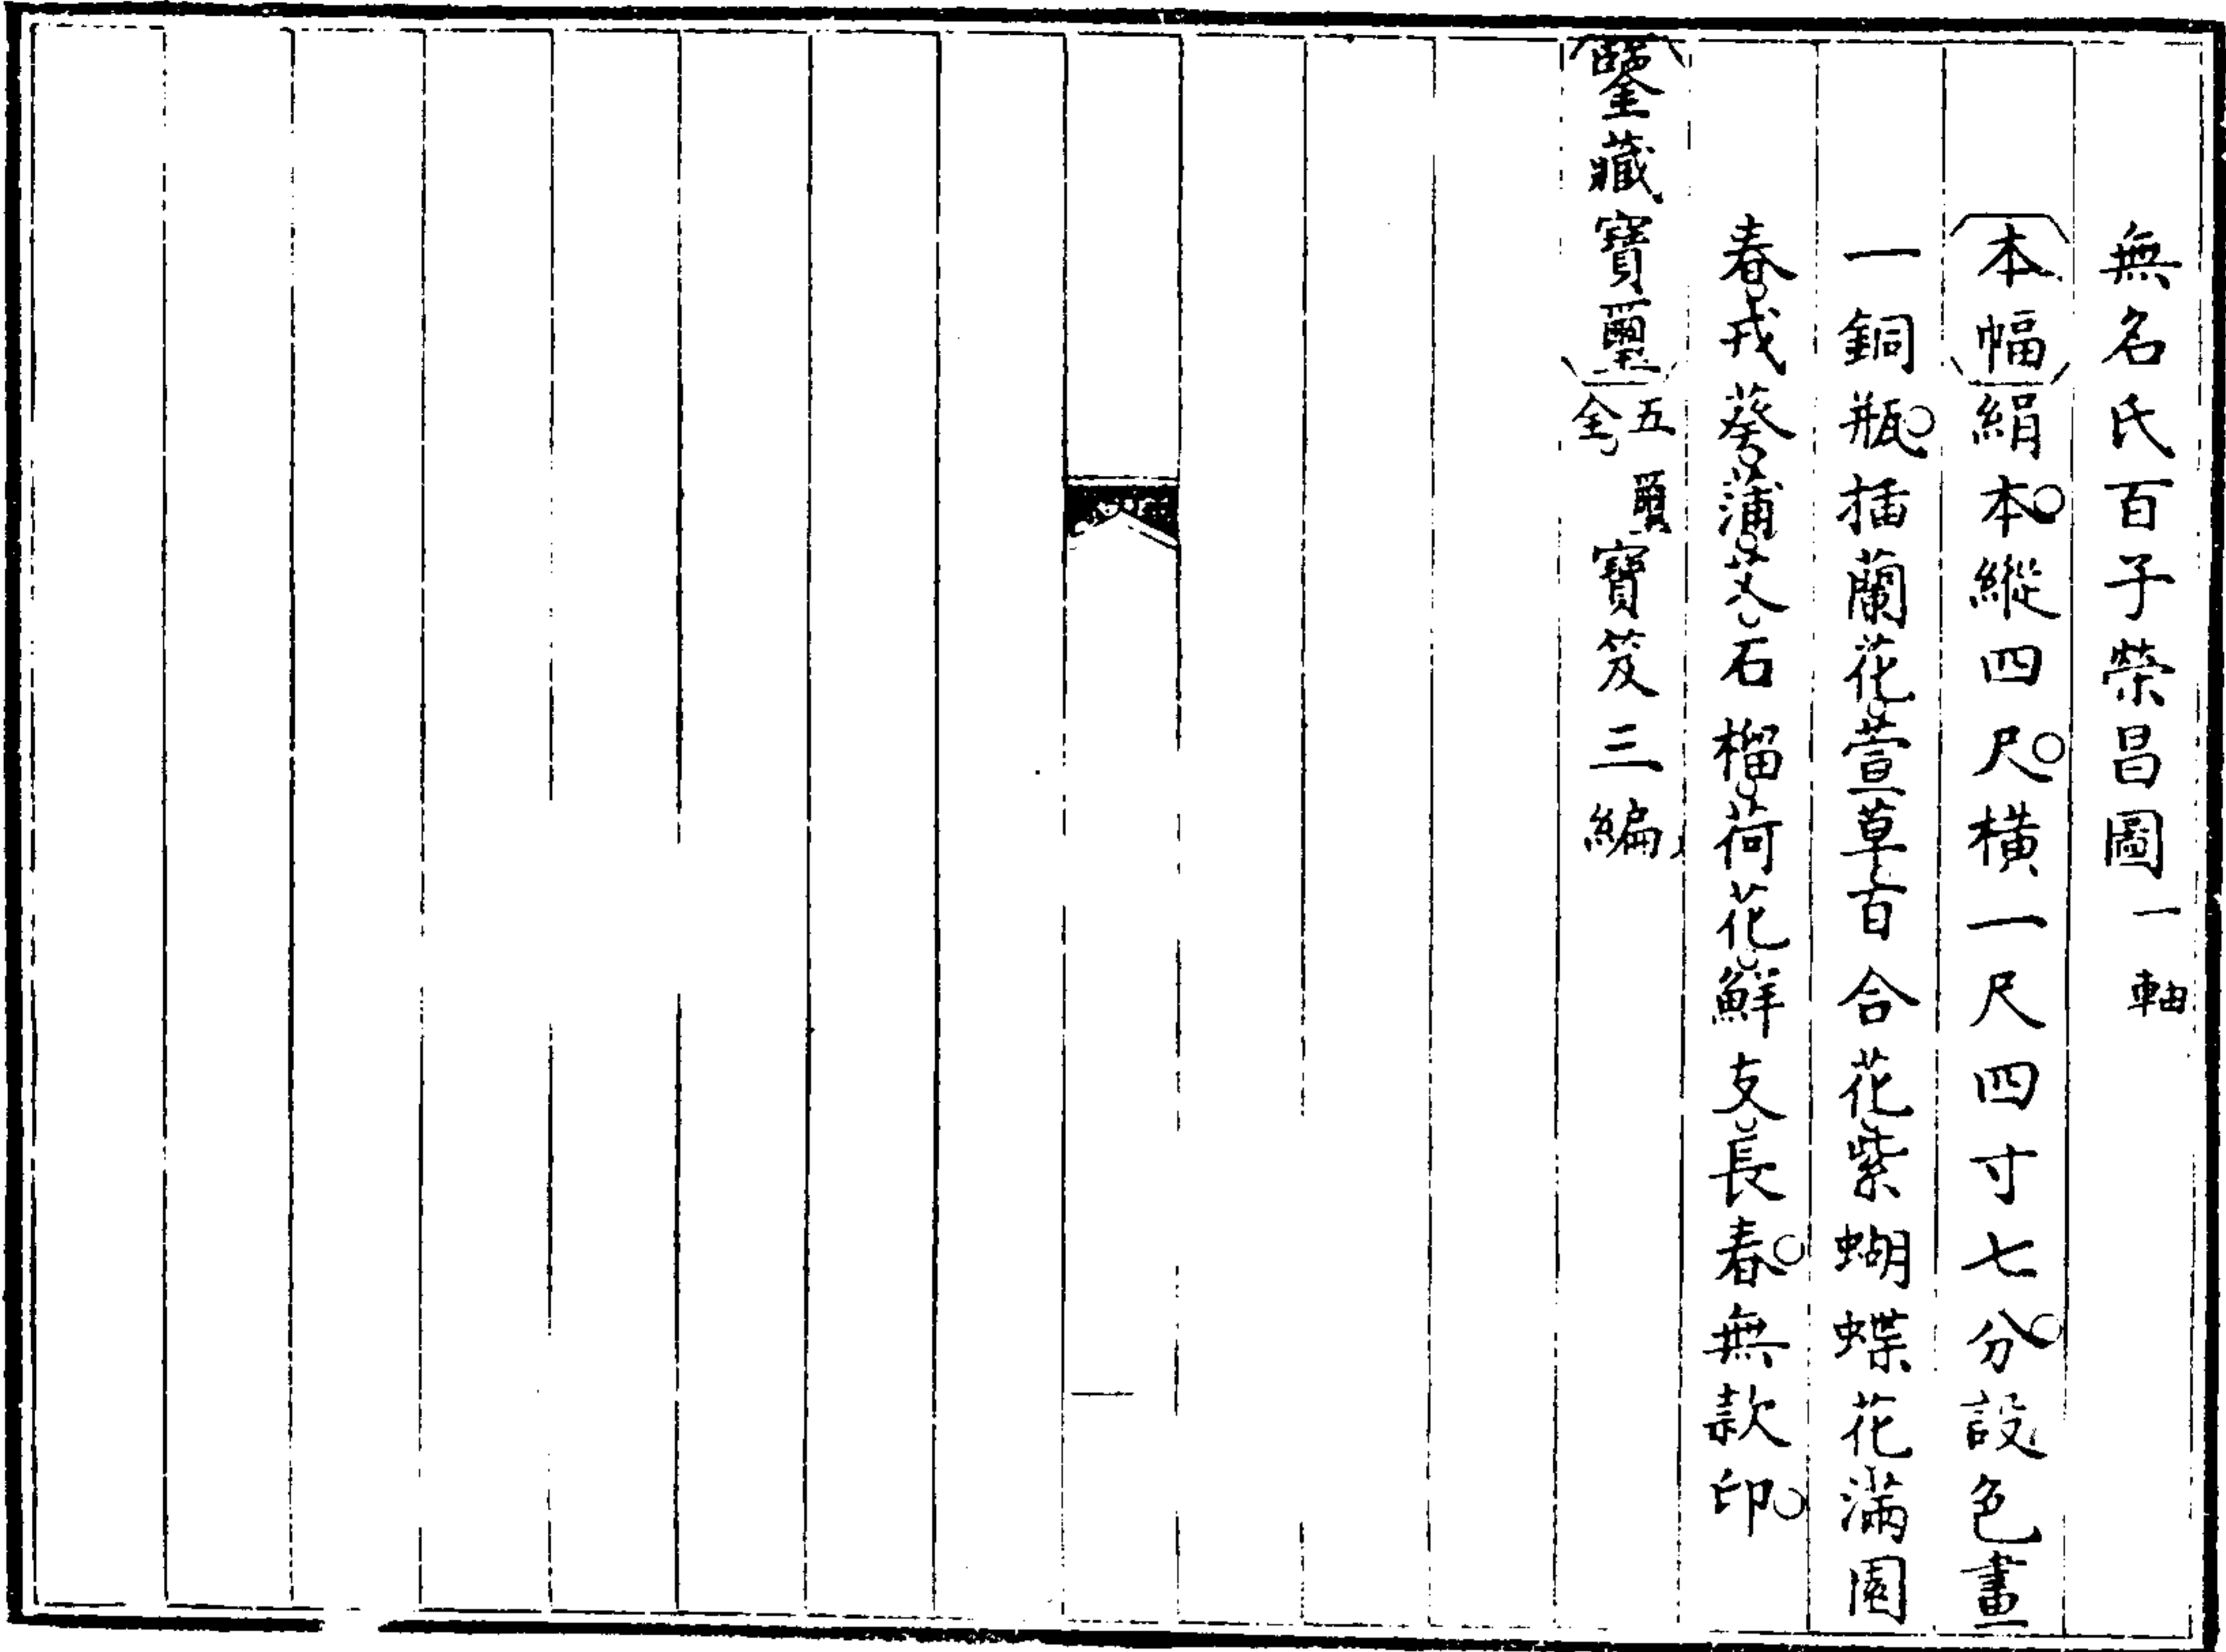 無名氏百子榮昌圖一軸
本幅絹本縱四尺橫一尺四寸七分設色畫
一銅瓶插蘭花萱草百合花紫蝴蝶花滿園
春戎葵蒲艾石榴荷花鮮支長春無款印
鑒藏寶璽五璽全寶笈三編